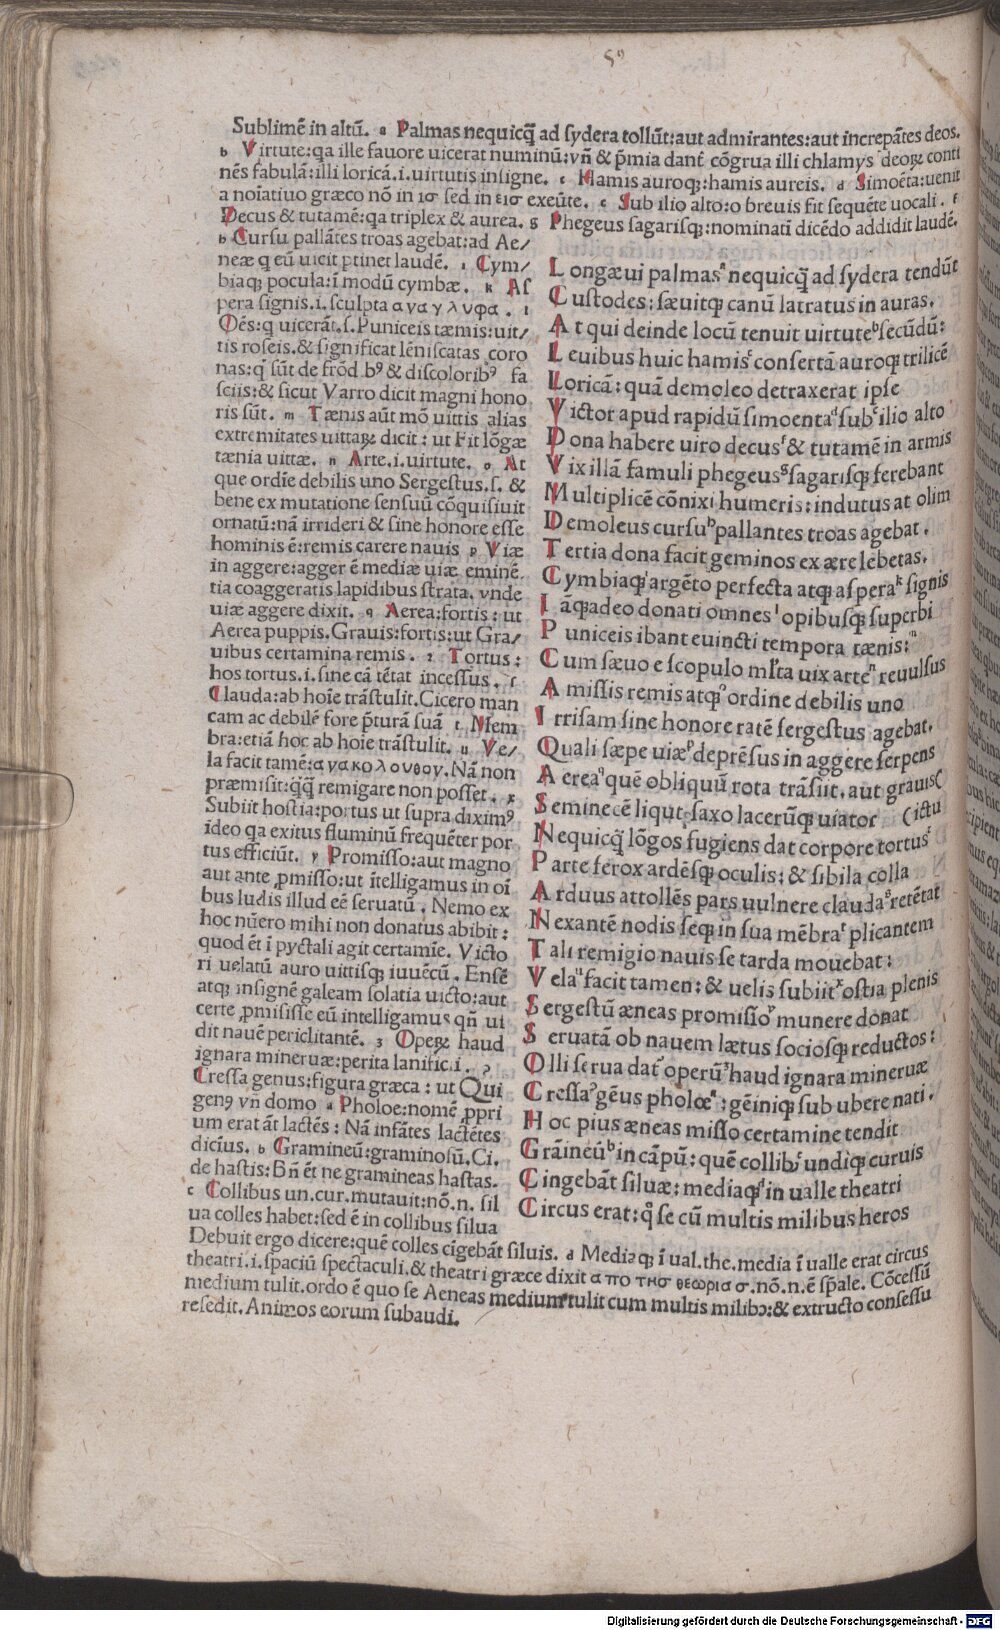 5⁹
Sublimē in altū. a Palmas nequicq̄ ad sydera tollūt:aut admirantes:aut increpātes deos.
b Virtute:qa ille fauore uicerat numinū:vñ & p̄mia danť cōgrua illi chlamys deoꝝ conti
nēs fabulā:illi loricā.i.uirtutis insigne. c Hamis auroqꝫ:hamis aureis. d Simoēta:uenit
a noiatiuo græco nō in ισ sed in εισ exeūte. e Sub ilio alto:o breuis fit sequēte uocali. f
Decus & tutamē:qa triplex & aurea. g Phegeus sagarisqꝫ:nominati dicēdo addidit laudē.
h Cursu pallātes troas agebat:ad Ae/
neæ q eū uicit ptinet laudē. i Cym/
biaqꝫ pocula:ī modū cymbæ. k As
pera signis.i.sculpta αναγλυφα. l
Oēs:q uicerāt.s.Puniceis tæmis:uit/
tis roseis.& significat lēniscatas coro
nas:q̄ sūt de frōd.bꝰ & discoloribꝰ fa
sciis:& sicut Varro dicit magni hono
ris sūt. m Tænis aūt mō uittis alias
extremitates uittaꝝ dicit: ut Fit lōgæ
tænia uittæ. n Arte.i.uirtute. o At
que ordīe debilis uno Sergestus.s. &
bene ex mutatione sensuū cōquisiuit
ornatū:nā irrideri & sine honore esse
hominis ē:remis carere nauis p Viæ
in aggere:agger ē mediæ uiæ eminē
tia coaggeratis lapidibus strata. vnde
uiæ aggere dixit. q Aerea:fortis: ut
Aerea puppis.Grauis:fortis:ut Gra/
uibus certamina remis. r Tortus:
hos tortus.i.sine cā tētat incessus. s
Clauda:ab hoie trāstulit.Cicero man
cam ac debilē fore p̄turā suā t Mem
bra:etiā hoc ab hoie trāstulit. u Ve/
la facit tamē:ανακολουθον.Nā non
præmisit:q̄q̄ remigare non posset. x
Subiit hostia:portus ut supra diximꝰ
ideo qa exitus fluminū frequēter por
tus efficiūt. y Promisso:aut magno
aut ante ꝓmisso:ut ītelligamus in oī
bus ludis illud eē seruatū. Nemo ex
hoc nūero mihi non donatus abibit:
quod ēt ī pyctali agit certamīe. Victo
ri uelatū auro uittisqꝫ iuuēcū. Ensē
atqꝫ insignē galeam solatia uicto:aut
certe ꝓmisisse eū intelligamus qñ ui
dit nauē periclitantē. z Opeꝝ haud
ignara mineruæ:perita lanific.i. ?
Cressa genus:figura græca: ut Qui
genꝰ vñ domo a Pholoe:nomē ꝓpri
um erat āt lactēs: Nā infātes lactētes
dicīus. b Gramineū:graminosū.Ci.
de hastis: Bñ ēt ne gramineas hastas.
c Collibus un.cur.mutauit:nō.n. sil
ua colles habet:sed ē in collibus silua
Debuit ergo dicere:quē colles cīgebāt siluis. d Mediaqꝫ ī ual.the.media ī ualle erat circus
theatri.i.spaciū spectaculi.& theatri græce dixit απο τησ θεωριασ.nō.n.ē sp̄ale. Cōcessū
medium tulit.ordo ē quo se Aeneas medium tulit cum multis milibꝰ:& extructo consessu
resedit.Animos eorum subaudi.
Longæui palmasᵃ nequicq̄ ad sydera tendūt
Custodes: sæuitqꝫ canū latratus in auras.
At qui deinde locū tenuit uirtuteᵇ secūdū:
Leuibus huic hamisᶜ consertā auroqꝫ trilicē
Loricā: quā demoleo detraxerat ipse
Victor apud rapidū simoentaᵈ subᵉ ilio alto
Dona habere uiro decusᶠ & tutamē in armis
Vix illā famuli phegeusᵍ sagarisqꝫ ferebant
Multiplicē cōnixi humeris: indutus at olim
Demoleus cursuʰ pallantes troas agebat.
Tertia dona facit geminos ex ære lebetas.
Cymbiaqꝫⁱ argēto perfecta atqꝫ asperaᵏ signis
Iāqꝫ adeo donati omnesˡ opibusqꝫ superbi
Puniceis ibant euincti tempora tænis:ᵐ
Cum sæuo e scopulo mľta uix arteⁿ reuulsus
Amissis remis atqꝫᵒ ordine debilis uno
Irrisam sine honore ratē sergestus agebat.
Quali sæpe uiæᵖ deprēsus in aggere serpens
Aereaᑫ quē obliquū rota trāsiit, aut grauis(
Seminecē liqut saxo lacerūqꝫ uiator (ictu
Nequicq̄ lōgos fugiens dat corpore tortusʳ
Parte ferox ardēsqꝫ oculis: & sibila colla
Arduus attollēs pars uulnere claudaˢ retētat
Nexantē nodis seqꝫ in sua mēbraᵗ plicantem
Tali remigio nauis se tarda mouebat:
Velaᵘ facit tamen: & uelis subiitˣ ostia plenis
Sergestū æneas promissoʸ munere donat
Seruatā ob nauem lætus sociosqꝫ reductos:
Olli serua dať operūᶻ haud ignara mineruæ
Cressaˀ gēus pholoeᵃ: gēiniqꝫ sub ubere nati.
Hoc pius æneas misso certamine tendit
Grāineūᵇ in cāpū: quē collibꝰᶜ undiqꝫ curuis
Cingebāt siluæ: mediaqꝫᵈ in ualle theatri
Circus erat: q̊ se cū multis milibus heros
Digitalisierung gefördert durch die Deutsche Forschungsgemeinschaft - DFG